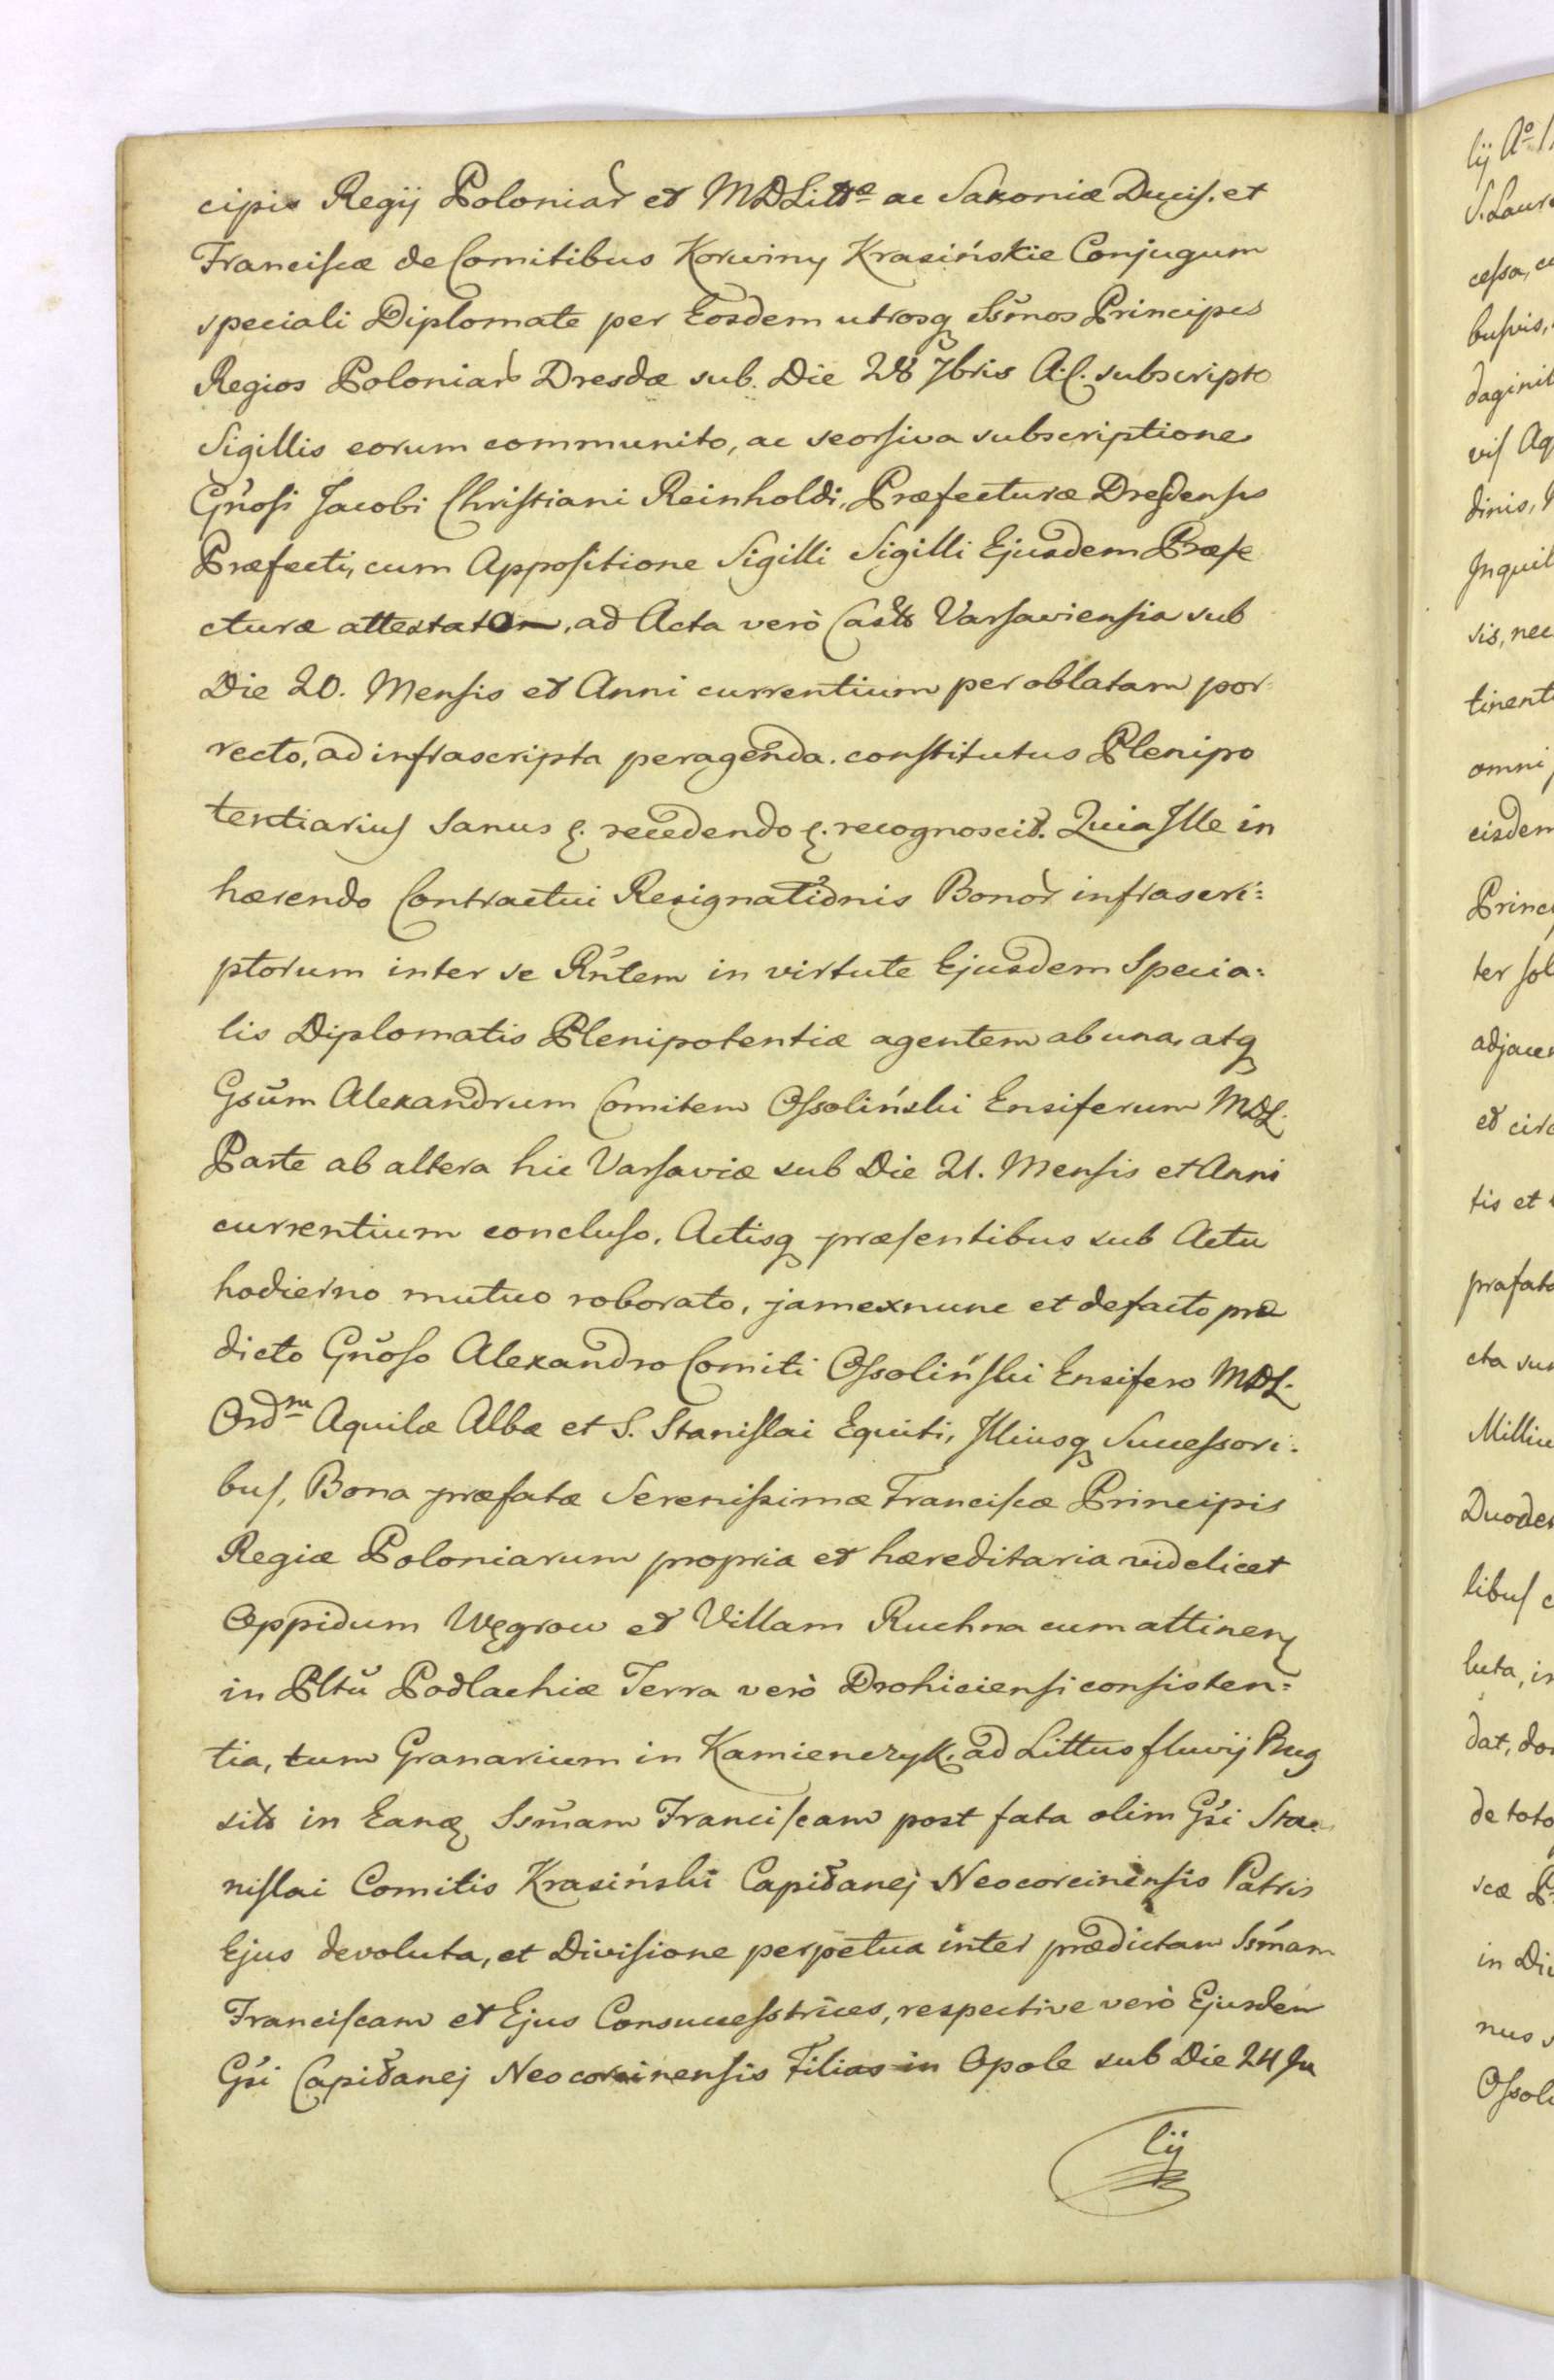 cipis Regij Poloniar̃ et MDLittæ ac Saxoniæ Ducis. et
Franciscæ de Comitibus Korwiny Krasińskie Conjugum
speciali Diplomate per Eosdem utrosq Ssmos Principes
Regios Poloniar̃ Dresdæ sub. Die 28 7bris A.C. subscripto
Sigillis eorum communito, ac seorsiva subscriptione
Gnosi Jacobi Christiani Reinholdi, Præfecturæ Dresdensis
Præfecti, cum Appositione Sigilli Sigilli Ejusdem Præfe
cturæ attestato, ad Acta verò Castr̃ Varsaviensia sub
Die 20. Mensis et Anni currentium per oblatam por
recto, ad infrascripta peragenda. constitutus Plenipo
tentiarius Sanus &. recedendo &. recognoscit. Quia Ille in
hærendo Contractui Resignationis Bonor̃ infrascri:
ptorum inter se Rñtem in virtute Ejusdem Specia:
lis Diplomatis Plenipotentiæ agentem ab una, atq
Gsum Alexandrum Comitem Ossoliński Ensiferum MDL.
Parte ab altera hic Varsaviæ sub Die 21. Mensis et Anni
currentium concluso, Actisq præsentibus sub Actu
hodierno mutuo roborato, jam exnunc et defacto præ
dicto Gnoso Alexandro Comiti Ossoliński Ensifero MDL.
Ordm Aquilæ Albæ et S. Stanislai Equiti, Illiusq Successori:
bus, Bona præfatæ Serenissimæ Franciscæ Principis
Regiæ Poloniarum propria et hæreditaria videlicet
Oppidum Węgrow et Villam Ruchna cum attinen
in Pltũ Podlachiæ Terra verò Drohiciensi consisten:
tia, tum Granarium in Kamienczyk, ad Littus fluvij Bug
sit̃ in Eanq Ssmam Franciscam post fata olim Gsi Sta
nislai Comitis Krasiński Capitanej Neocorcinensis Patris
Ejus devoluta, et Divisione perpetua inter prædictam Ssmam
Franciscam et Ejus Consuccesstrices, respective verò Ejusdem
Gsi Capitanej Neocorcinensis Filias in Opole sub Die 24 Ju
lij